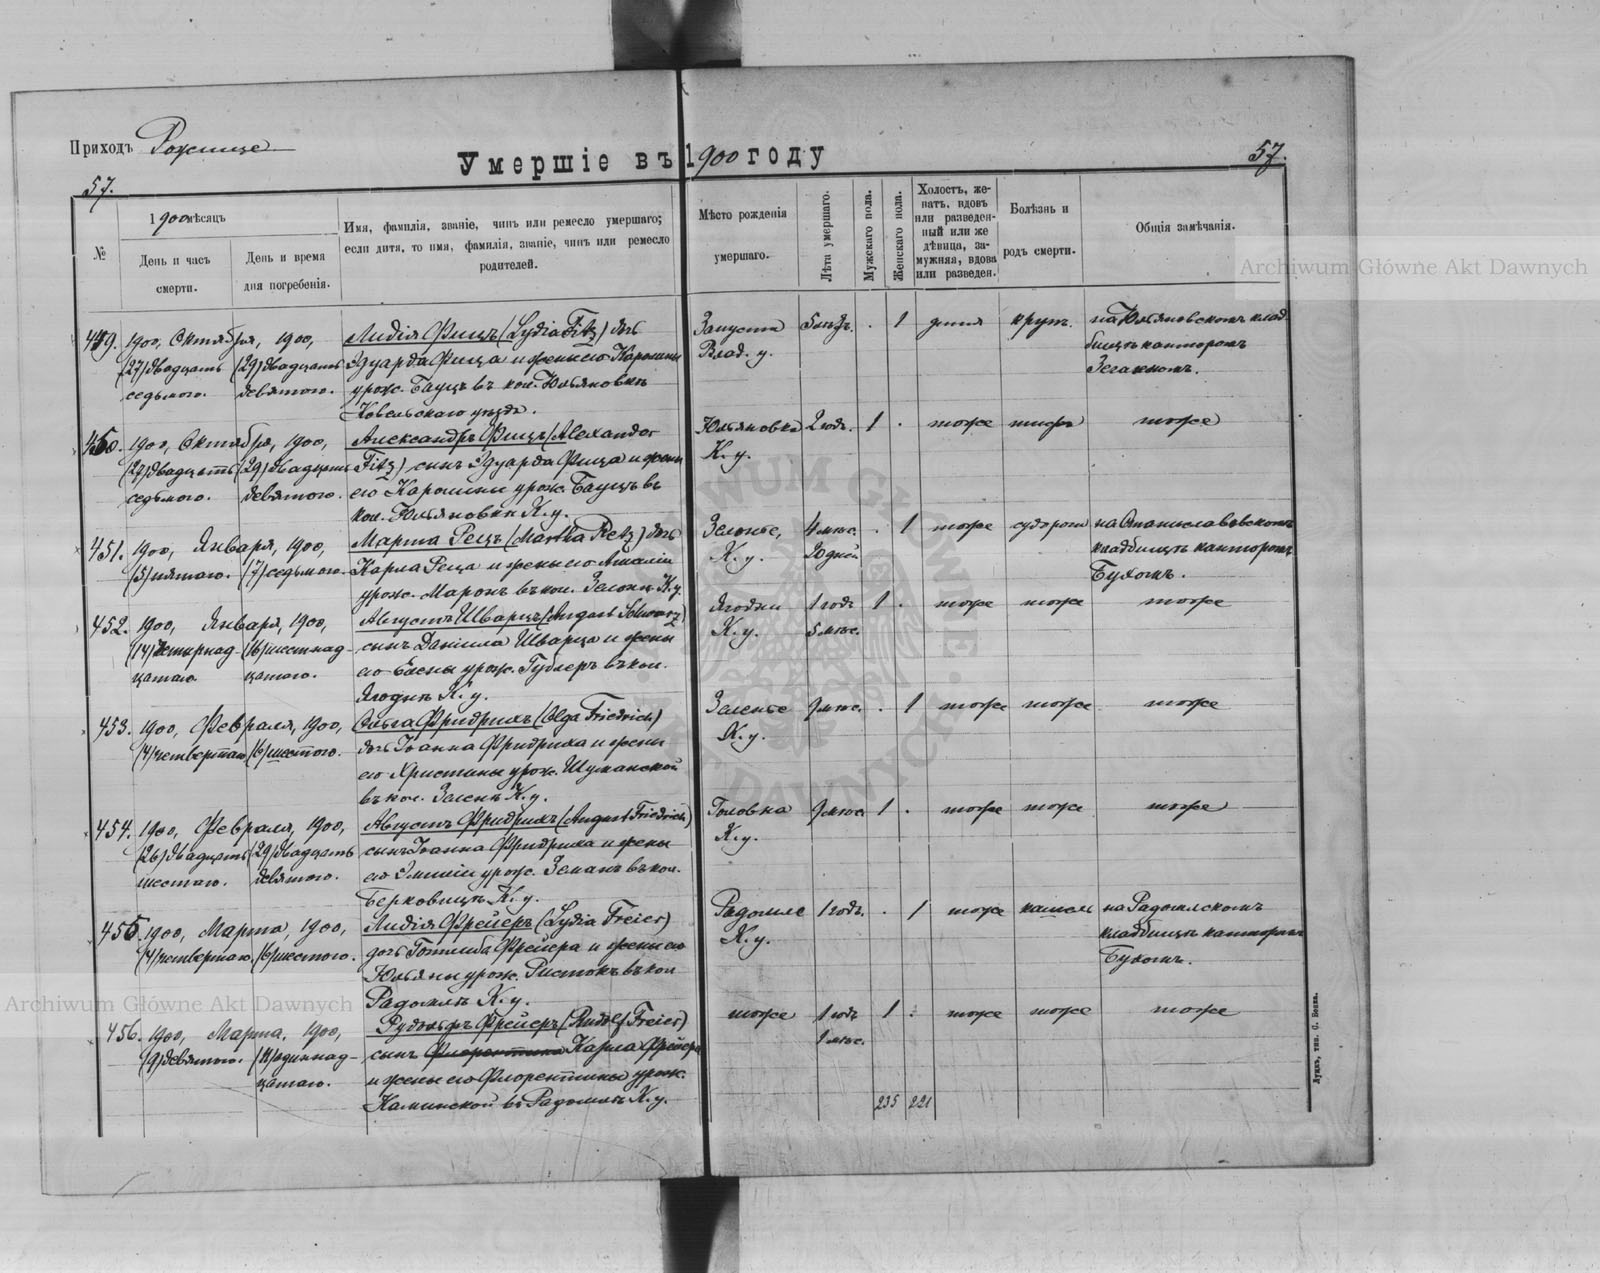 Приходъ Рожище
Умершіе въ 1900 году
57.
57.
№
1900 мѣсяцъ
День и часъ смерти.
День и время дня погребенія.
Имя, фамилія, званіе, чинъ или ремесло умершаго;
если дитя, то имя, фамилія, званіе, чинъ или ремесло
родителей.
Мѣсто рожденія
умершаго.
Лѣта умершаго.
Мужскаго пола.
Женскаго пола.
Холостъ, же-
натъ, вдовъ
или разведен-
ный или же
дѣвица, за-
мужняя, вдова
или разведен.
Болѣзнь и
родъ смерти.
Общія замѣчанія.
449. 1900, Октября, 1900,
(27) двадцать седьмого. (29) двадцать девятого.
Лидія Фицъ (Lydia Fitz) дочь
Эдуарда Фица и жены его Каролины
урож. Бауцъ въ кол. Юльяновкѣ
Ковельскаго уѣзда.
Влад. у.
1
крупъ.
на Юльяновскомъ клад-
бищѣ канторомъ
450. 1900, Октября, 1900,
(27) двадцать седьмого. (29) двадцать девятого.
Александръ Фицъ (Alexander
Fitz) сынъ Эдуарда Фица и жены
его Каролины урож. Бауцъ въ
кол. Юльяновкѣ К. у.
Юльяновка
К. у.
2 года. 1 тоже тифъ тоже
451. 1900, Января, 1900,
(5) пятаго. (7) седьмого.
Марта Рецъ (Martha Retz) дочь
Карла Реца и жены его Амаліи
урож. Марокъ въ кол. К. у.
К. у.
4 мѣс.
20 дней
1 тоже судороги на Станиславовскомъ
кладбищѣ канторомъ
Бухомъ.
452. 1900, Января, 1900,
(14) четырнад-
цатаго (16) шестнад-
цатого.
Августъ Шварцъ (August Schwarz)
сынъ Даніила Шварца и жены
его Елены урож. Гублеръ въ кол.
Ягодкѣ К. у.
Ягодки
К. у.
1 годъ
5 мѣс.
1 тоже тоже тоже
453. 1900, Февраля, 1900,
(4) четвертаго (6) шестого.
Ольга Фридрихъ (Olga Friedrich)
дочь Іоанна Фридриха и жены
его Христины урож. Шуманской
въ кол. Зеленѣ К. у.
Зеленье
К. у.
9 мѣс. 1 тоже тоже тоже
454. 1900, Февраля, 1900,
(26) двадцать шестаго. (29) двадцать девятого.
Августъ Фридрихъ (August Friedrich)
сынъ Іоанна Фридриха и жены
его Эмиліи урож. Земанъ въ кол.
Берковицѣ К. у.
Головка
К. у.
9 мѣс. 1 тоже тоже тоже
455. 1900, Марта, 1900,
(4) четвертаго (6) шестого.
Лидія Фрейеръ (Lydia Freier)
дочь Готлиба Фрейера и жены его
Юльяны урож. Ристокъ въ кол.
Радомлѣ К. у.
Радомле
К. у.
1 годъ. 1 тоже кашель на Радомлскомъ
кладбищѣ канторомъ
Бухомъ.
456. 1900, Марта, 1900,
(9) девятого. (11) одиннад-
цатаго.
Рудольфъ Фрейеръ (Rudolf Freier)
сынъ Флорентина Карла Фрейера
и жены его Флорентины урож.
Каминской въ Радомлѣ К. у.
тоже
1 годъ
1 мѣс.
1 тоже тоже тоже
235 221
Луцкъ, тип. С. Бонка.
Archiwum Główne Akt Dawnych
Archiwum Główne Akt Dawnych
ARCHIWUM GŁÓWNE AKT DAWNYCH